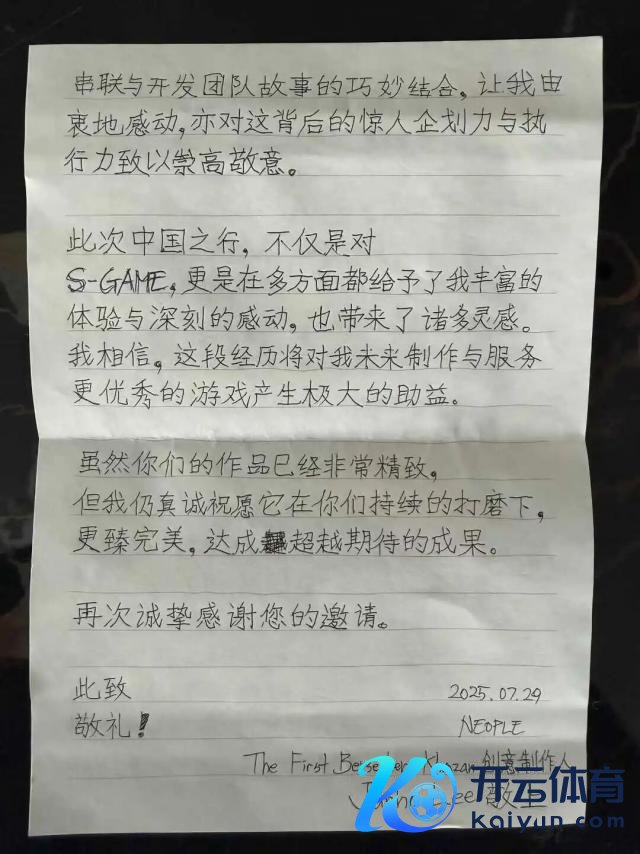 串联与开发团队故事的巧妙结合，让我由
衷地感动，亦对这背后的惊人企划力与执
行力致以崇高敬意。
此次中国之行，不仅是对
S-GAME，更是在多方面都给予了我丰富的
体验与深刻的感动，也带来了诸多灵感。
我相信，这段经历将对我未来制作与服务
更优秀的游戏产生极大的助益。
虽然你们的作品已经非常精致，
但我仍真诚祝愿它在你们持续的打磨下，
更臻完美，达成超越期待的成果。
再次诚挚感谢您的邀请。
此致
2025.07.29
敬礼！
NEOPLE
The First Berserker Khazan 创意制作人
Lee 敬上
开云体育
Kaiyun.com